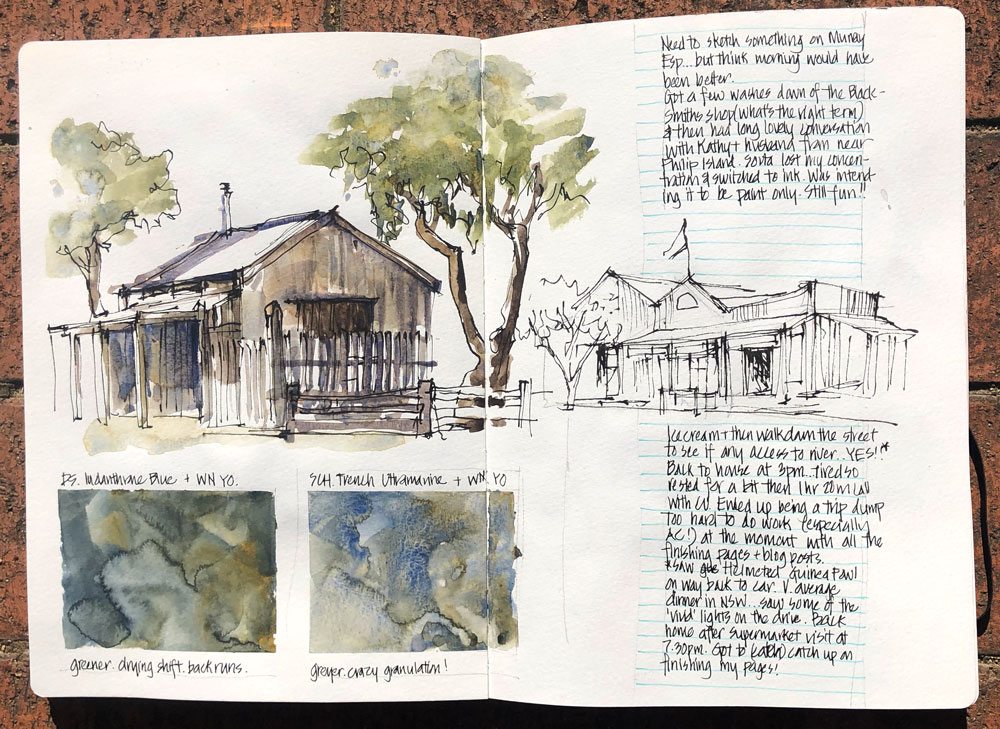 DS. Indanthrone Blue + WN YO.
greener. drying shift. back runs.
SCH. French Ultramarine + WN YO
greyer. crazy granulation!
Need to sketch something on Murray
Esp... but think morning would have
been better.
Got a few washes down of the Black-
smiths shop (what's the right term)
& then had long lovely conversation
with Kathy + husband from near
Philip Island. Sorta lost my concen-
tration & switched to ink. Was intend-
ing it to be paint only. Still fun!!
Ice cream + then walk down the street
to see if any access to river.. YES!!*
Back to house at 3pm.. tired so
rested for a bit then 1hr 20m call
with LW. Ended up being a trip dump
Too hard to do work (especially
AC!) at the moment with all the
finishing pages + blog posts.
*saw Helmeted Guinea Fowl
on way back to car. V. average
dinner in NSW... saw some of the
'vivid' lights on the drive. Back
home after supermarket visit at
7.30pm. Got to (catch) catch up on
finishing my pages!